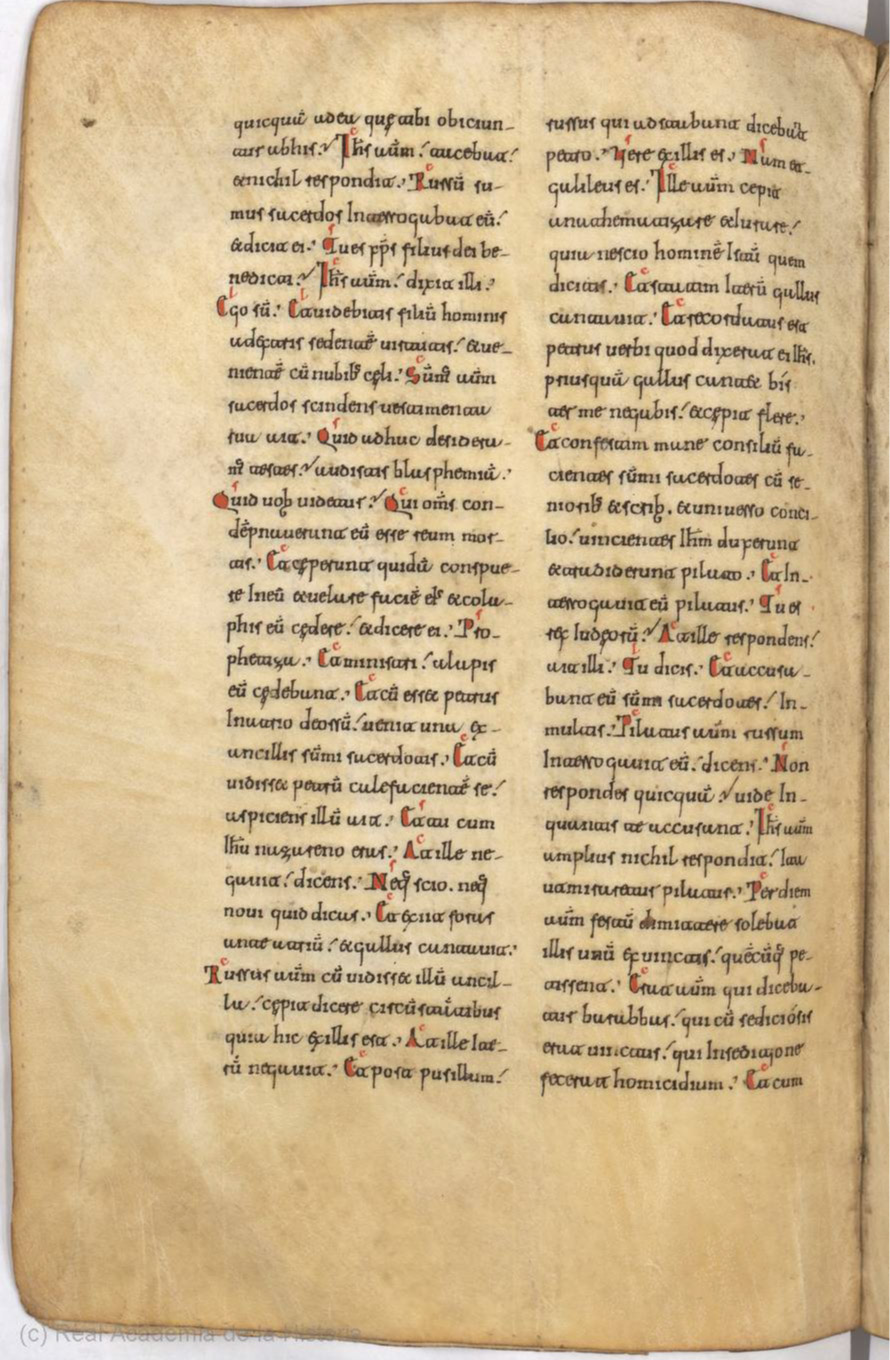 quicquā ad ea quę tibi obiciun-
tur ab his? Ihs aūm tacebat
et nichil respondit. Rursū su-
mus sacerdos Interrogabat eū
et dicit ei. Tu es xp̄s filius dei be-
nedicti? Ihs aūm dixit illi.
Ego sū. Et uidebitis filiū hominis
a dextris sedentē uirtutis et ue-
nientē cū nubibꝰ cęli. Sūmꝰ aūm
sacerdos scindens uestimenta
sua ait. Quid adhuc desidera-
mꝰ testes? audistis blasphemiā.
Quid uob uidetur? Qui oms con-
dēpnauerunt eū esse reum mor-
tis. Et ceperunt quidā conspue-
re In eū et uelare faciē eiꝰ et cola-
phis eū cędere et dicere ei. Pro-
phetiza. Et ministri alapis
eū cędebant. Et cū esset petrus
In atrio deorsū uenit una ex
ancillis sūmi sacerdotis. Et cū
uidisset petrū calefacientē se
aspiciens illū ait. Et tu cum
Ihu nazareno eras. At ille ne-
gauit dicens. Neq; scio. neq;
noui quid dicas. Et exiit foras
ante atriū et gallus cantauit.
Rursus aūm cū uidisset illū ancil-
la cępit dicere circūstantibus
quia hic ex illis est. At ille ite-
rū negauit. Et post pusillum
rursus qui adstabant dicebāt
petro. Vere ex illis es. Nam et
galileus es. Ille aūm cepit
anathematizare et iurare
quia nescio hominē Istū quem
dicitis. Et statim Iterū gallus
cantauit. Et recordatus est
petrus uerbi quod dixerat ei ihs.
priusquā gallus cantet bis
ter me negabis et cępit flere.
Et confestim mane consiliū fa-
cientes sūmi sacerdotes cū se-
nioribꝰ et scrib. et uniuerso conci-
lio uincientes Ihm duxerunt
et tradiderunt pilato. Et In-
terrogauit eū pilatus. Tu es
rex Iudeorū? At ille respondens
ait illi. Tu dicis. Et accusa-
bant eū sūmi sacerdotes In
multis. Pilatus aūm rursum
Interrogauit eū dicens. Non
respondes quicquā? uide In
quantis te accusant. Ihs aūm
amplius nichil respondit ita
ut miraretur pilatus. Per diem
aūm festū dimittere solebat
illis unū ex uinctis quēcūq; pe-
tissent. Erat aūm qui diceba-
tur barabbas qui cū sediciosis
erat uinctus qui In sedicione
fecerat homicidium. Et cum
(c) Real Academia de la Historia